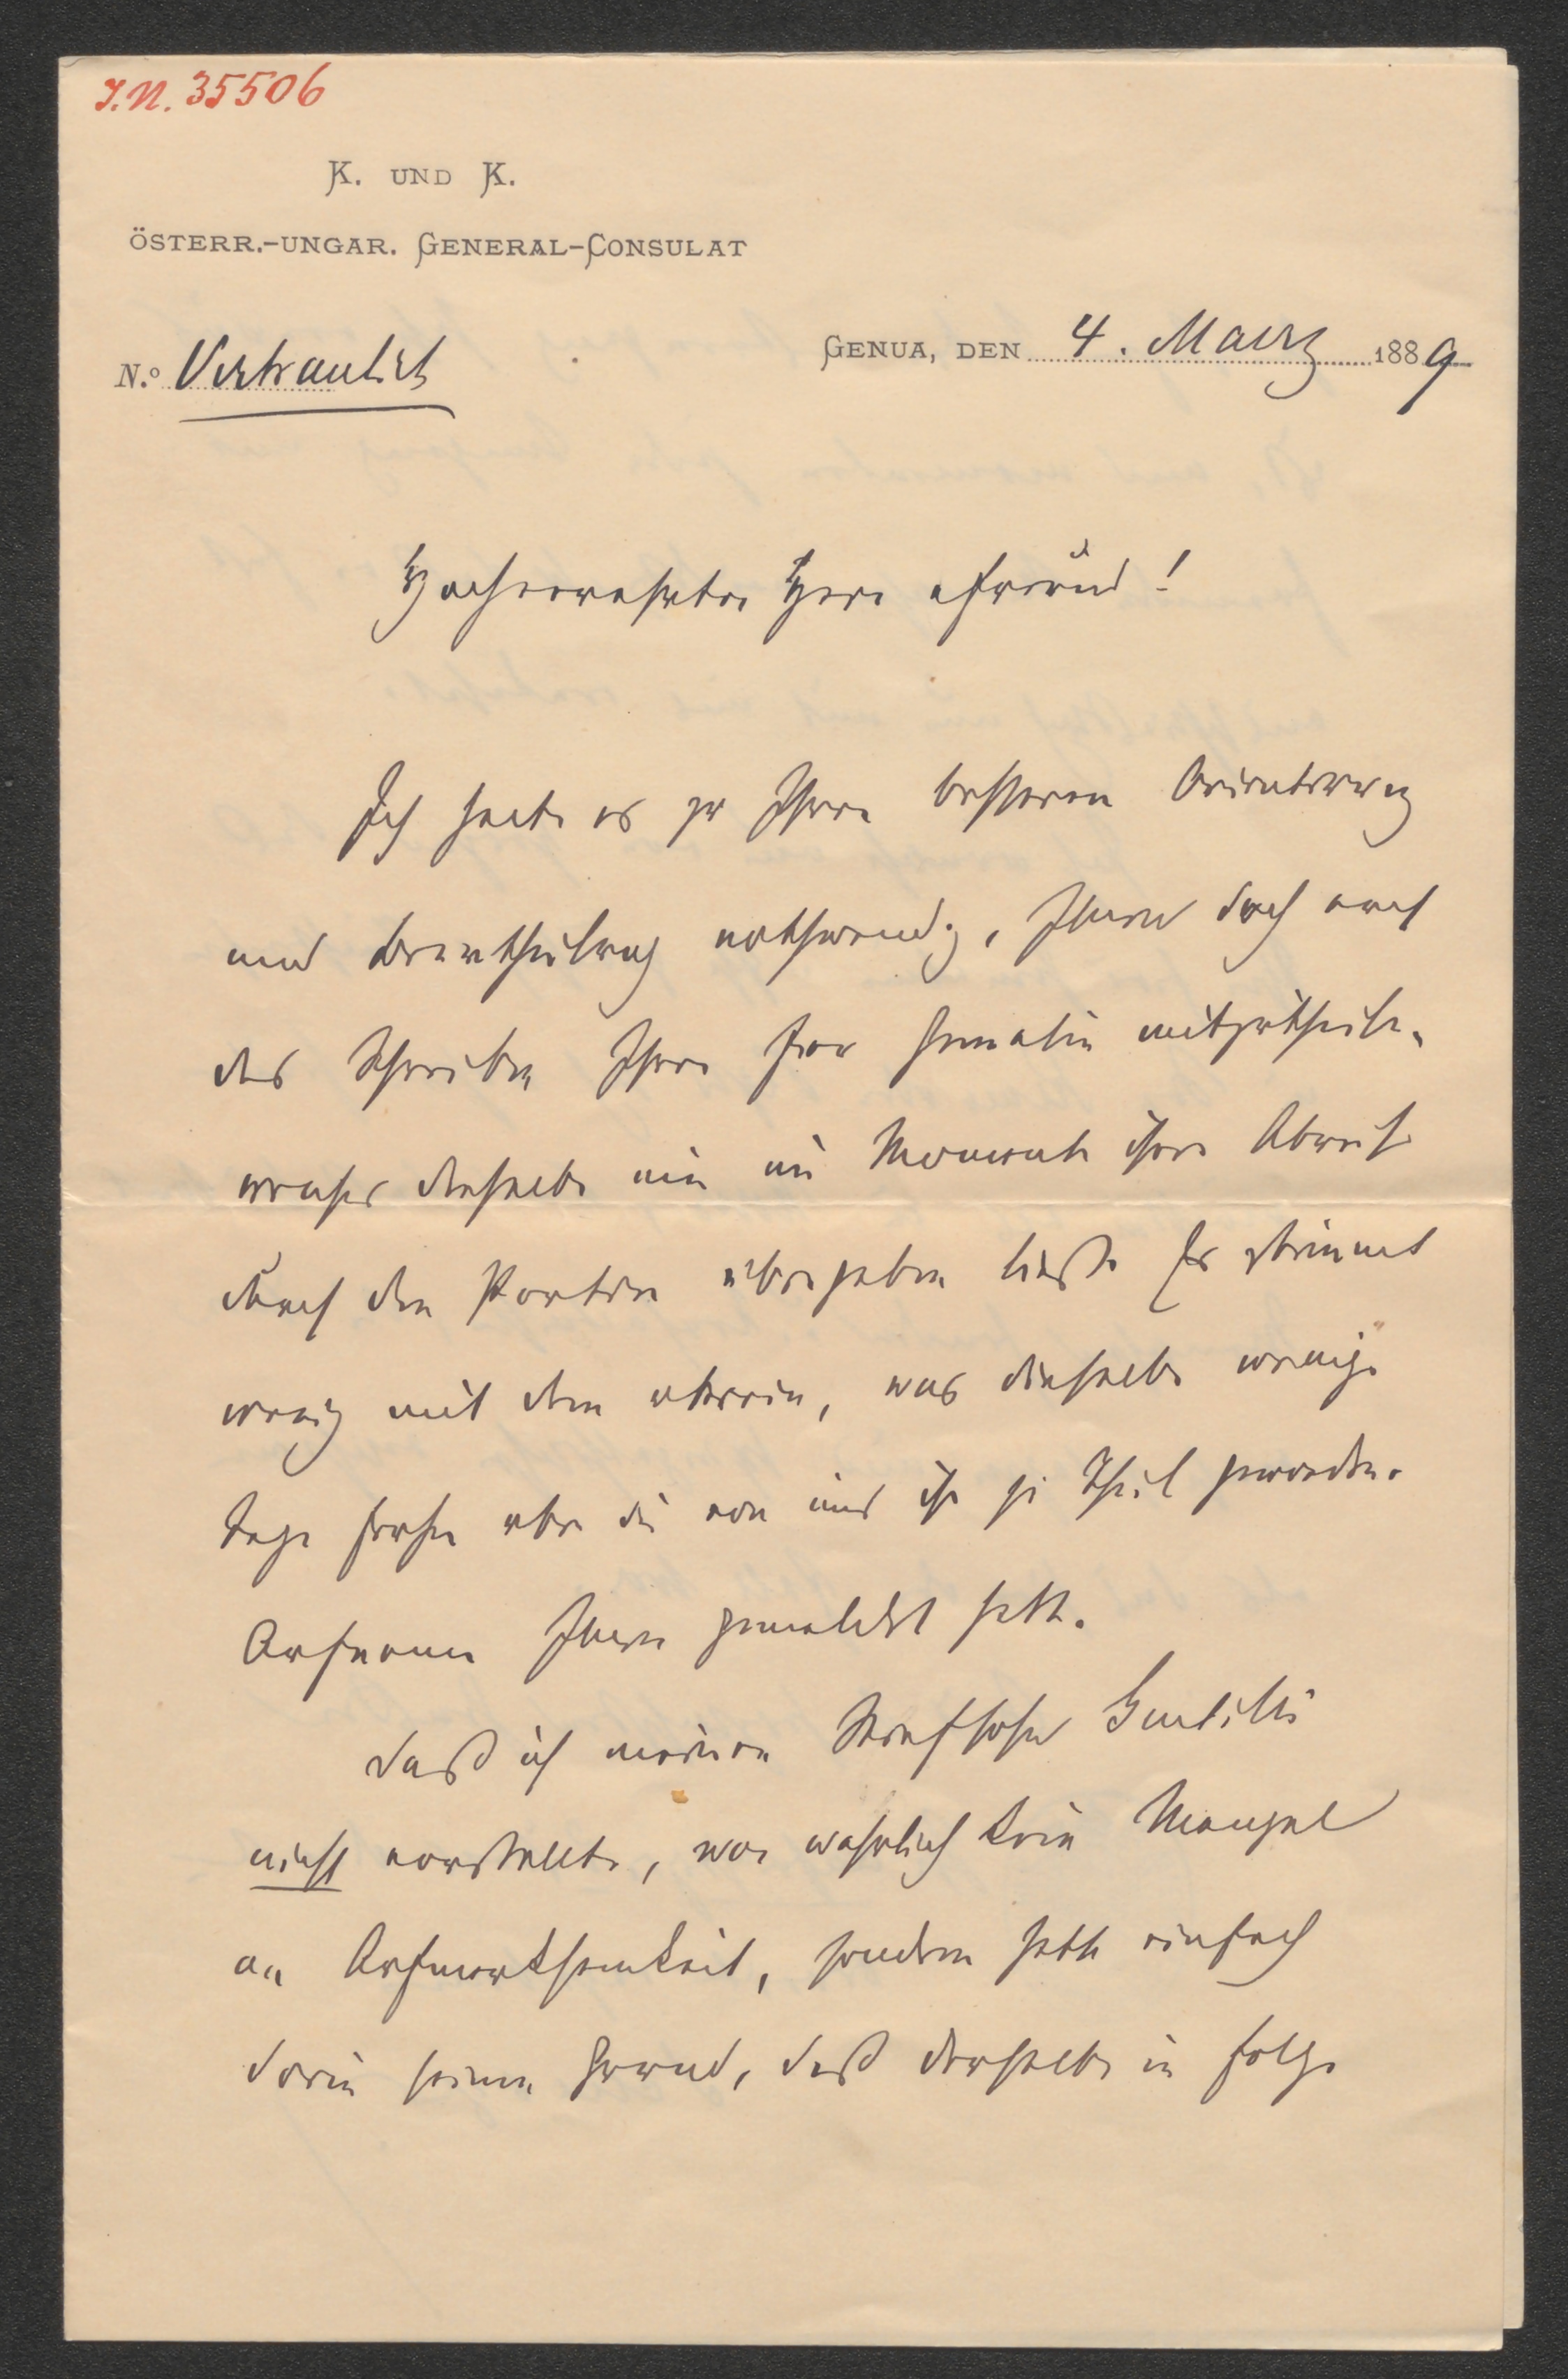 I.N. 35506
K. UND K.
ÖSTERR.-UNGAR. GENERAL-CONSULAT
N.º Vertraulich
GENUA, DEN 4. Maerz 1889
Hochverehrter Herr Freund!
Ich halte es zu Ihrer besseren Orientirung
und Beurtheilung nothwendig, Ihnen doch auch
das Schreiben Ihrer Frau Gemalin mitzutheilen
welches dieselbe mir im Momente ihrer Abreise
durch den Portier übergeben ließ. Es stimmt
wenig mit dem überein, was dieselbe wenige
Tage früher über die von uns ihr zu Theil gewordene
Aufname Ihnen gemeldet hatte.
Daß ich meinen Gentilli
nicht vorstellte, war wahrlich kein Mangel
an Aufmerksamkeit, sondern hatte einfach
darin seinen Grund, daß derselbe in Folge